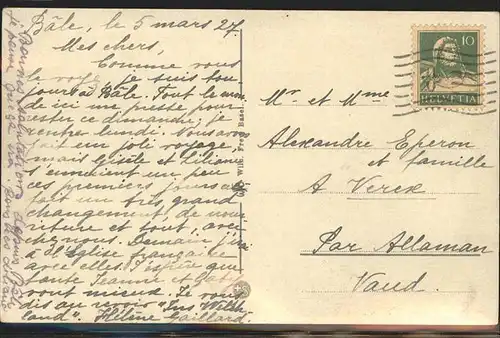 Bâle, le 5 mars 27.
Mes chers,
Comme vous
le voyez je suis tou-
jours à Bâle. Tout le mon-
de ici me presse pour
rester ce dimanche, je
rentrer lundi. Nous avons
fait un joli voyage,
mais Gisèle et Liliane
s'ennuient un peu
ces premiers jours, ça
fait un très grand
changement, de nour-
riture et tout, avec
chez nous. Demain j'irai
à l'Eglise française
avec elles. J'espère que
tante Jeanne et
vont mieux. Je vous
dis au revoir
Hélène Gaillard.
Bonnes salutations
je pense que ça va
Wilh. Frey, Basel
10
HELVETIA
Mr et Mme
Alexandre Eperon
et famille
A Verex
Par Allaman
Vaud.